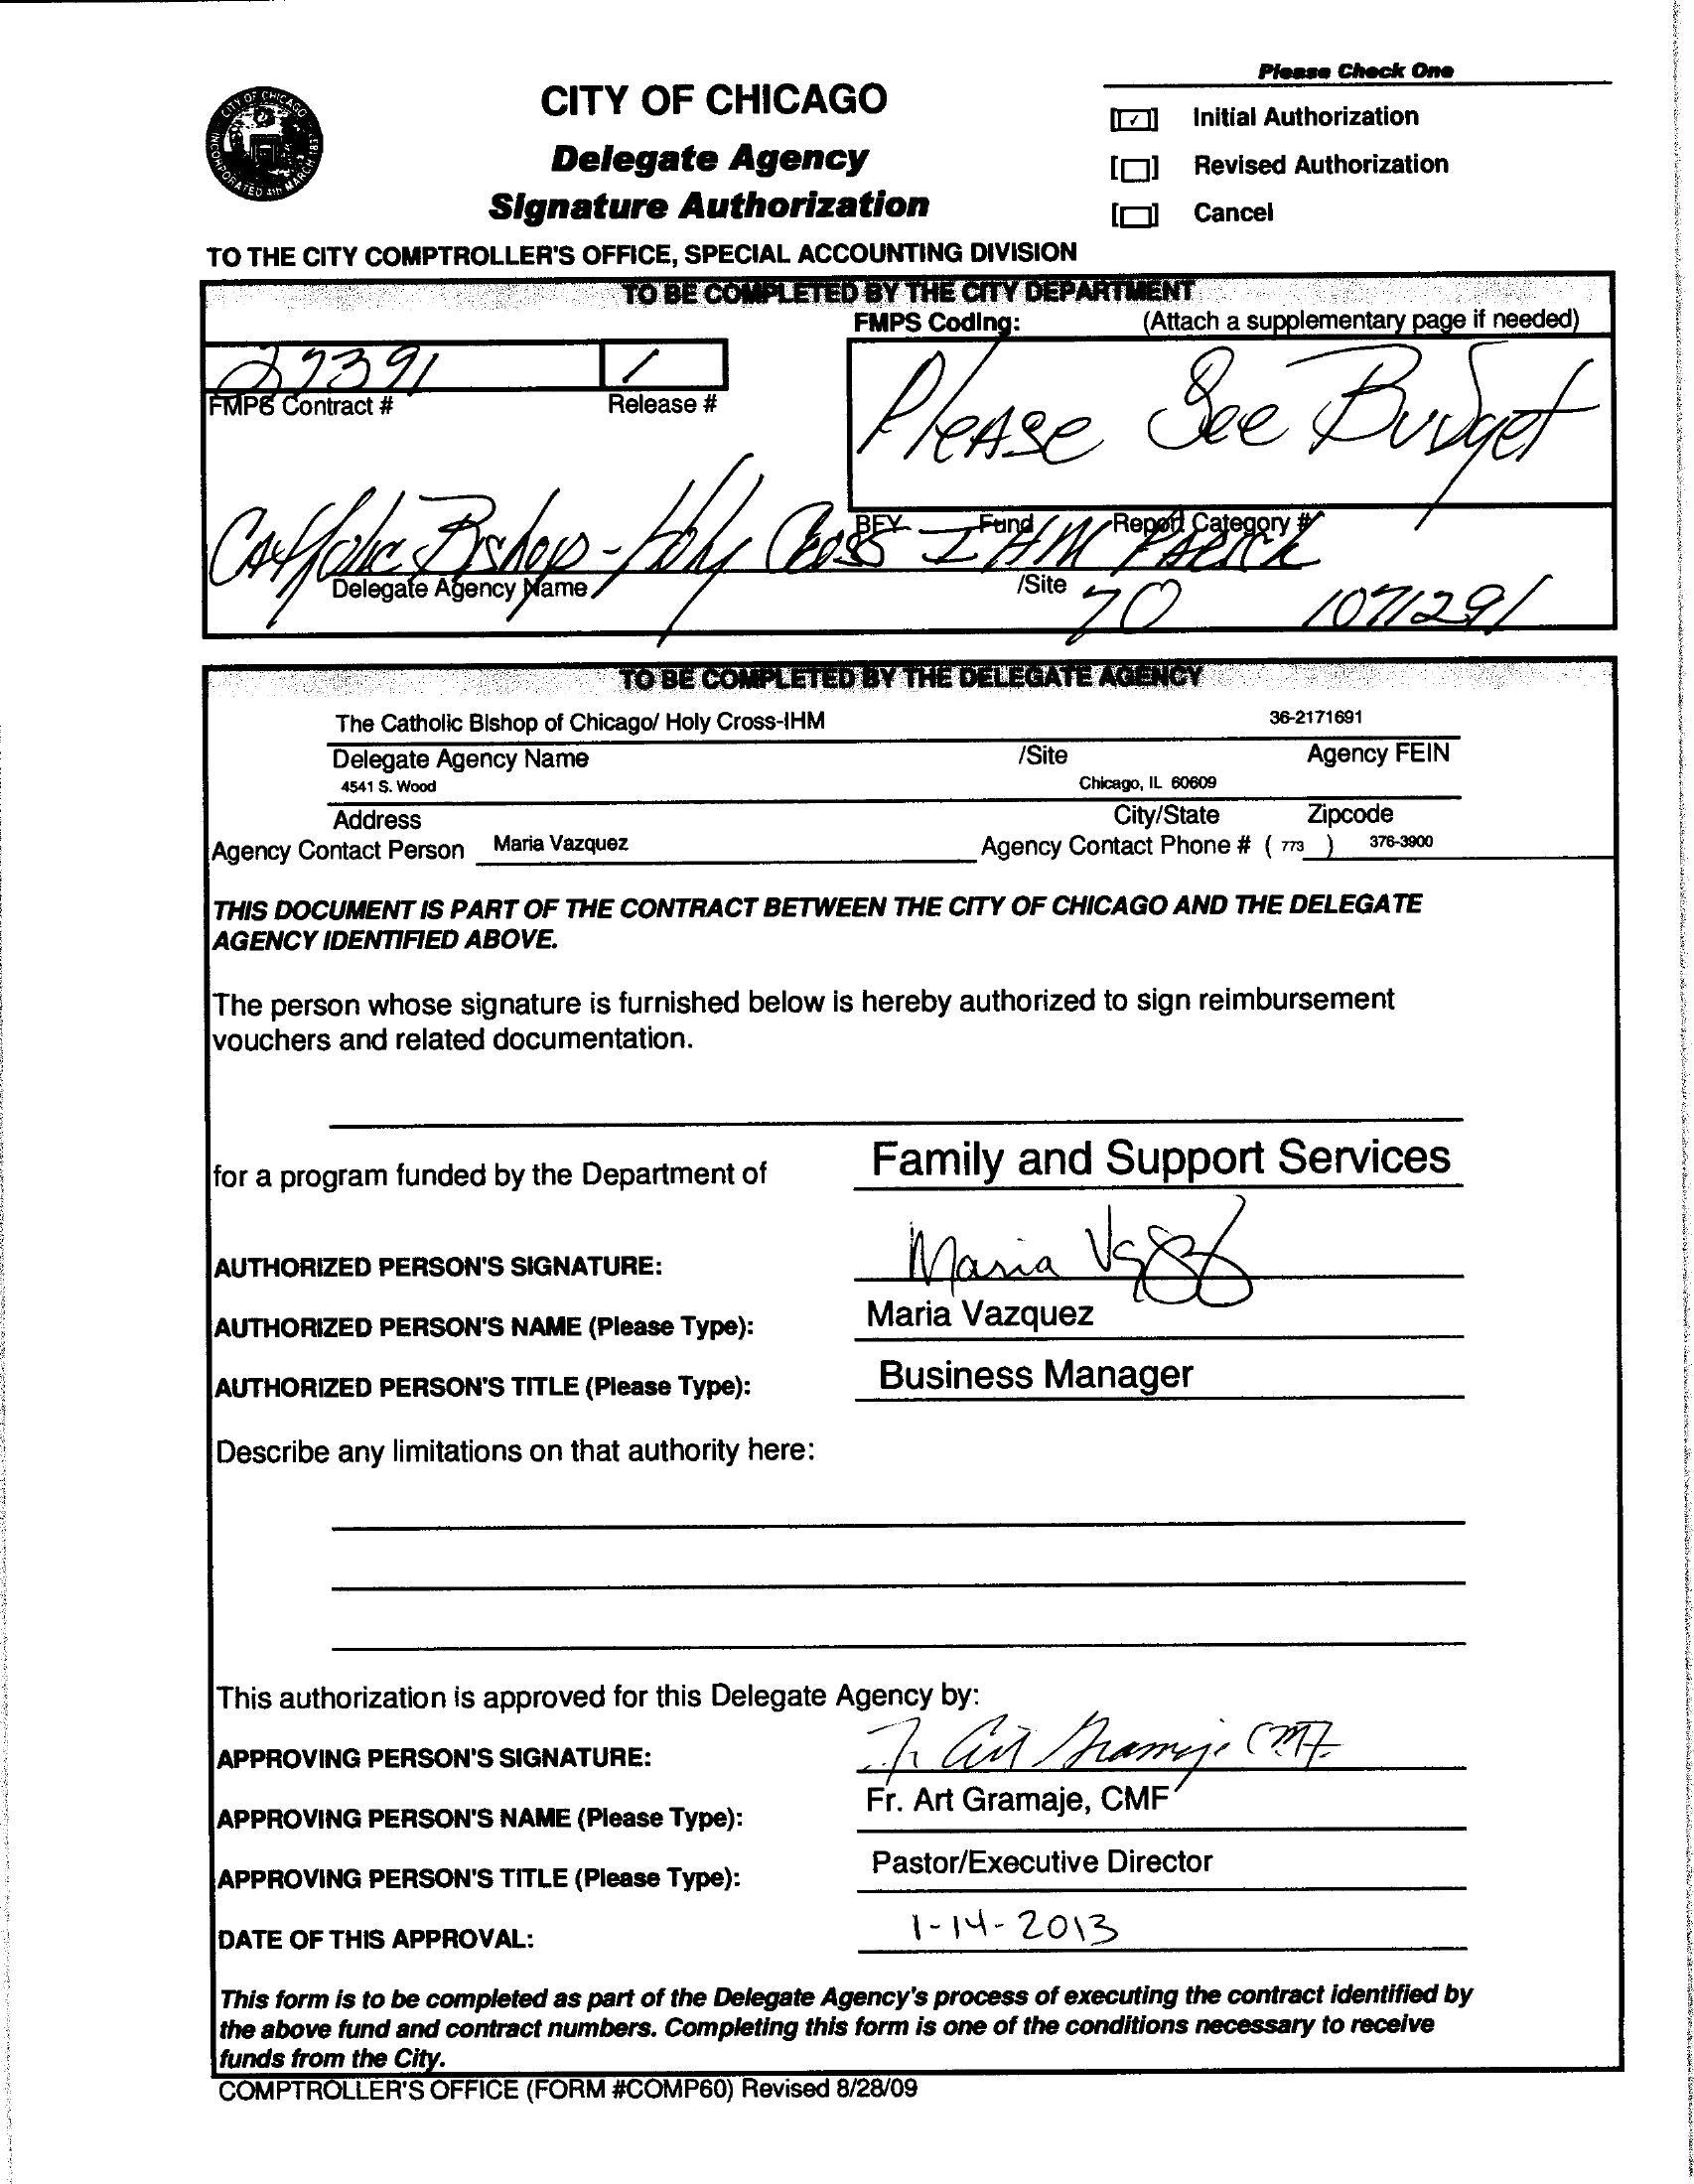 Please Check One
CITY OF CHICAGO
Delegate Agency
Signature Authorization
[✓] Initial Authorization
[ ] Revised Authorization
[ ] Cancel
CITY OF CHICAGO INCORPORATED 4th MARCH 1837
TO THE CITY COMPTROLLER'S OFFICE, SPECIAL ACCOUNTING DIVISION
TO BE COMPLETED BY THE CITY DEPARTMENT
FMPS Coding: (Attach a supplementary page if needed)
27391 1
FMPS Contract # Release #
Please See Budget
BFY Fund Report Category #
Catholic Bishop - Holy Cross IHM
Delegate Agency Name /Site
70 1071291
TO BE COMPLETED BY THE DELEGATE AGENCY
The Catholic Bishop of Chicago/ Holy Cross-IHM 36-2171691
Delegate Agency Name /Site Agency FEIN
4541 S. Wood Chicago, IL 60609
Address City/State Zipcode
Agency Contact Person Maria Vazquez Agency Contact Phone # ( 773 ) 376-3900
THIS DOCUMENT IS PART OF THE CONTRACT BETWEEN THE CITY OF CHICAGO AND THE DELEGATE
AGENCY IDENTIFIED ABOVE.
The person whose signature is furnished below is hereby authorized to sign reimbursement
vouchers and related documentation.
for a program funded by the Department of Family and Support Services
AUTHORIZED PERSON'S SIGNATURE: Maria
AUTHORIZED PERSON'S NAME (Please Type): Maria Vazquez
AUTHORIZED PERSON'S TITLE (Please Type): Business Manager
Describe any limitations on that authority here:
This authorization is approved for this Delegate Agency by:
APPROVING PERSON'S SIGNATURE: Fr. Art Gramaje CMF.
APPROVING PERSON'S NAME (Please Type): Fr. Art Gramaje, CMF
APPROVING PERSON'S TITLE (Please Type): Pastor/Executive Director
DATE OF THIS APPROVAL: 1-14-2013
This form is to be completed as part of the Delegate Agency's process of executing the contract identified by
the above fund and contract numbers. Completing this form is one of the conditions necessary to receive
funds from the City.
COMPTROLLER'S OFFICE (FORM #COMP60) Revised 8/28/09